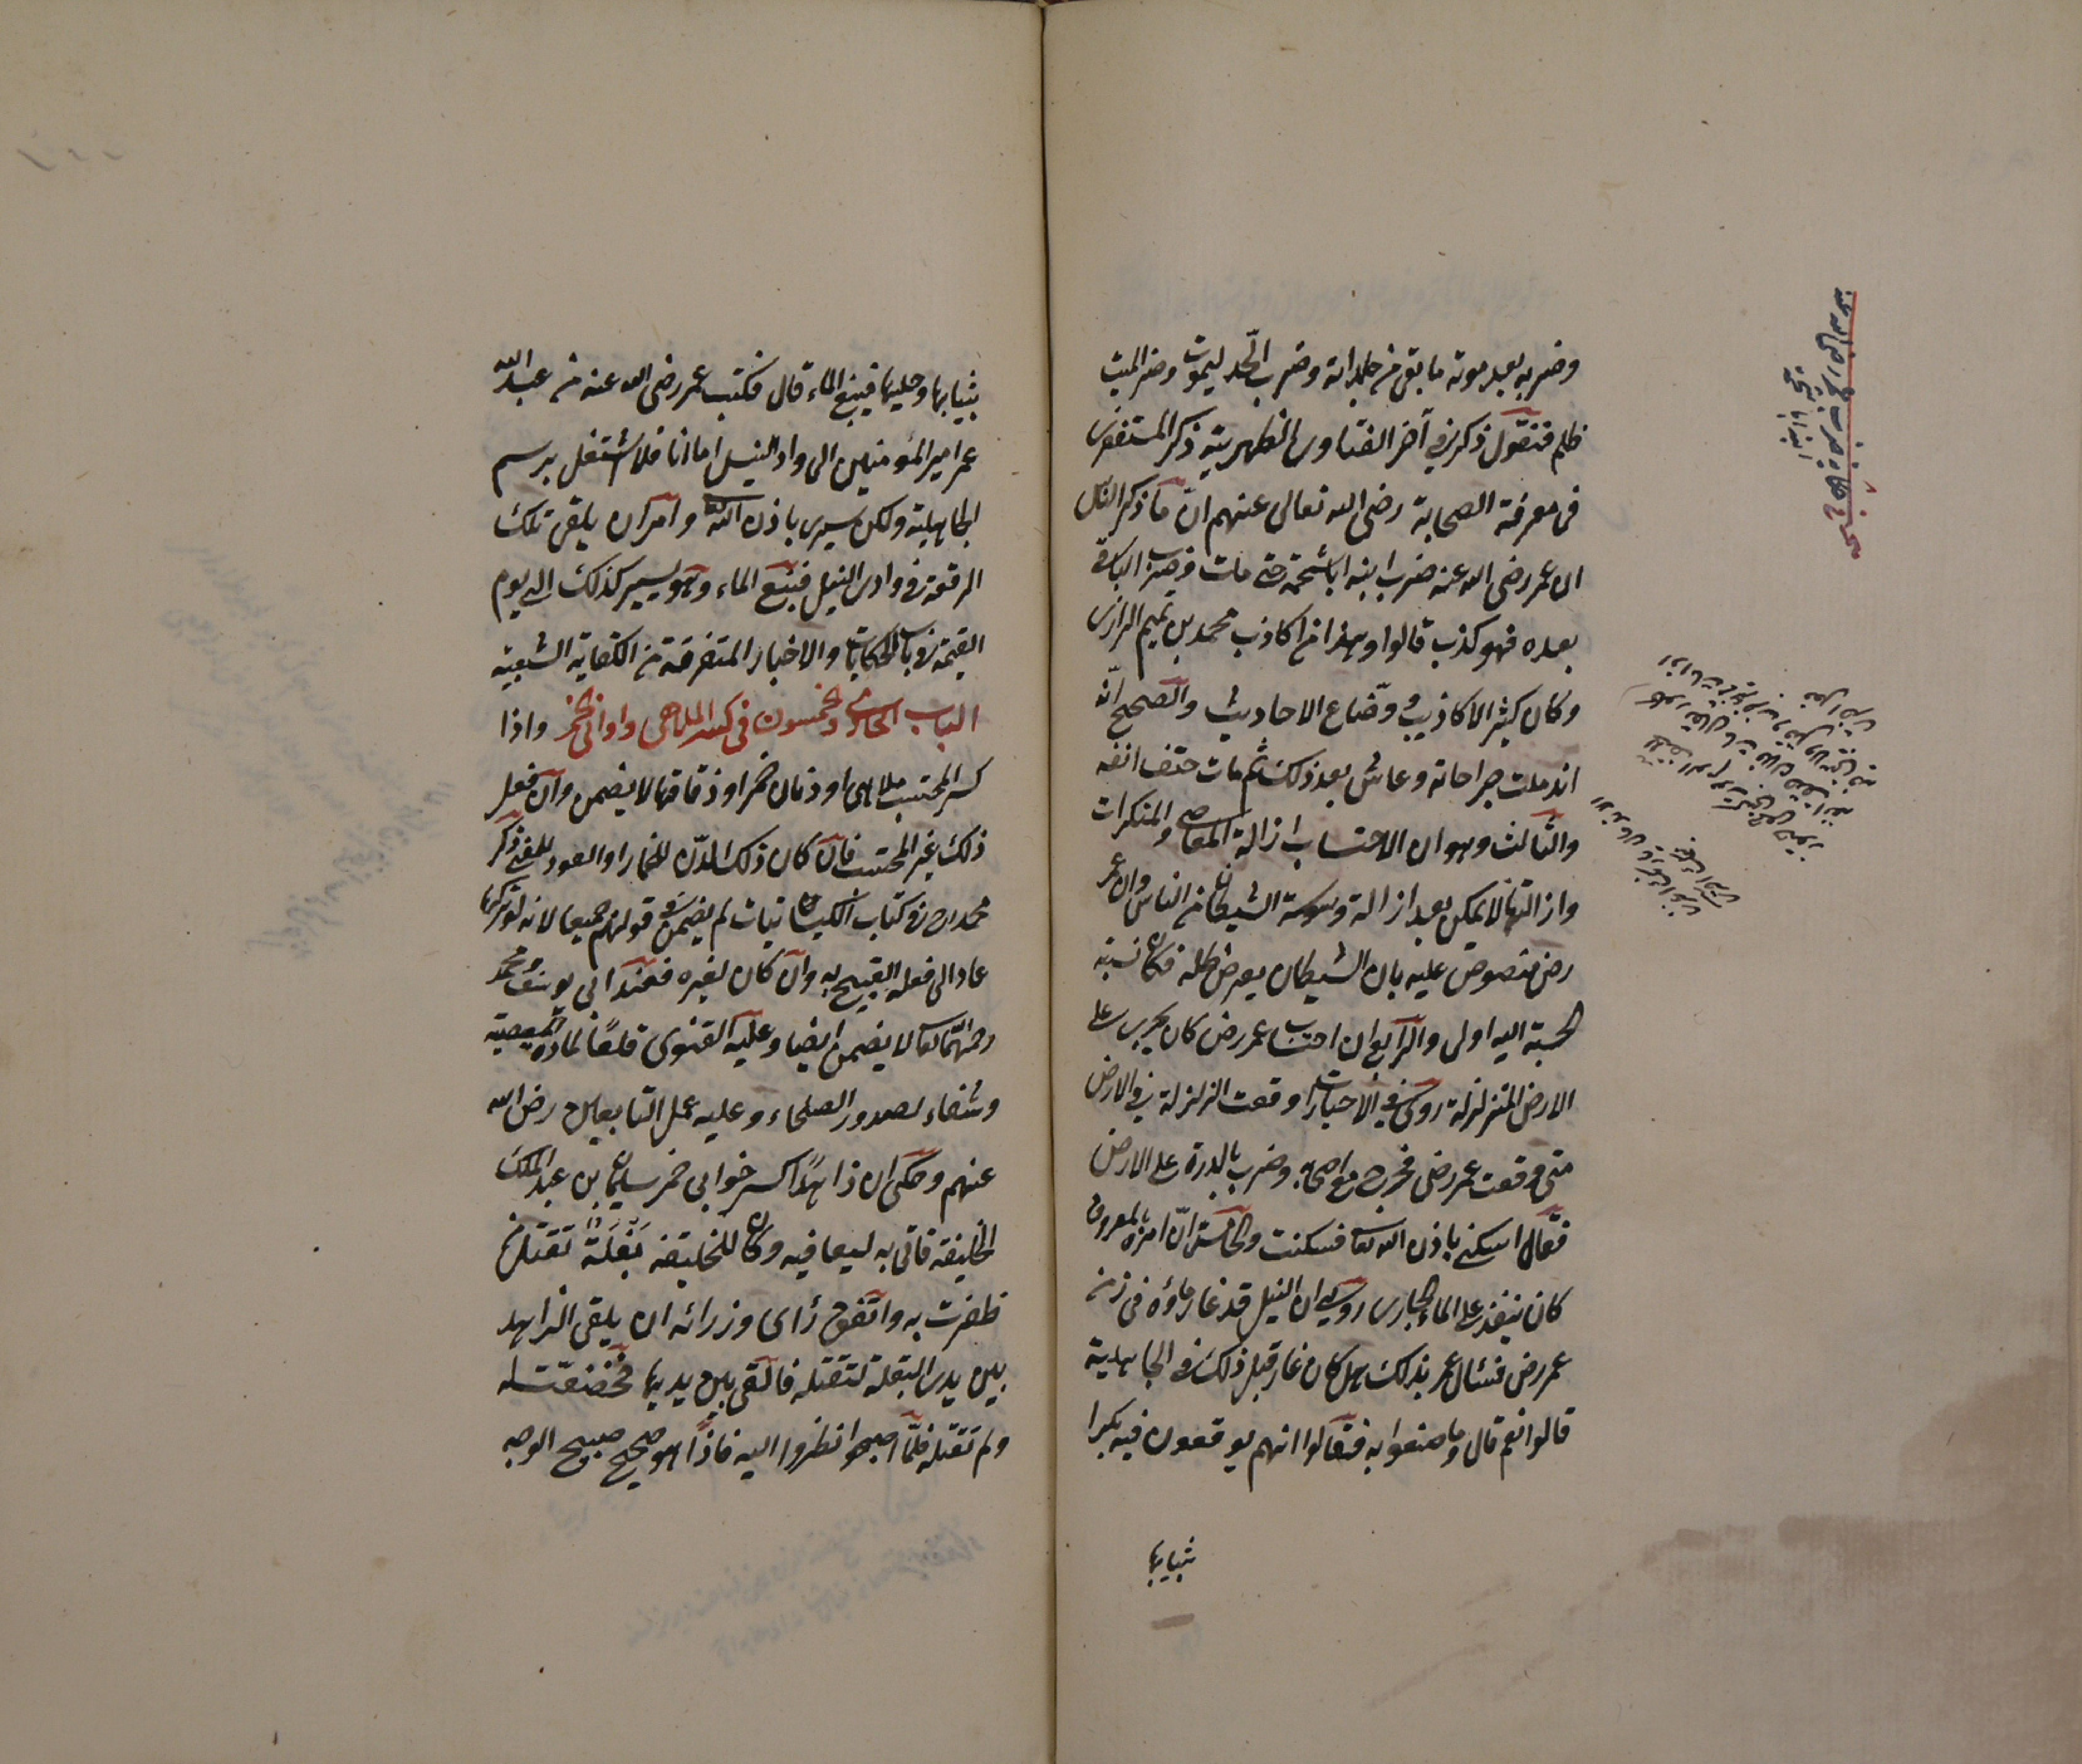 وضربه بعد موته ما بقى من جلداته وضرب الحد ليموت وضر الميت
ظلم فنقول ذكر في آخر الفتاوى الظهيرية ذكر المستغفرى
فى معرفة الصحابة رضى الله تعالى عنهم ان ما ذكر الناس
ان عمر رضى الله عنه ضرب ابنه ابا شحمة حتى مات وضرب الباقى
بعده فهو كذب قالوا وهذا من اكاذيب محمد بن تميم الرازى
وكان كثير الاكاذيب وضّاع الاحاديث والصحيح انّه
اندملت جراحاته وعاش بعد ذلك ثم مات حتف انفه
والثالث وهو ان الاحتساب ازالة المعاصى والمنكرات
وازالتها لا يمكن بعد ازالة وسوسة الشيطان من الناس وان عمر
رض منصوص عليه بان الشيطان يعرض ظله فكان نسبة
الحسبة اليه اولى والرابع ان احتساب عمر رض كان يجرى على
الارض المتزلزلة روى فى الاخبار وقعت الزلزلة فى الارض
متى وقعت عمر رضى فخرج مع اصحابه وضرب بالدرة على الارض
فقال اسكنى باذن الله تعا فسكنت والخامس انّ امره بالمعروف
كان ينفذ على الماء الجارى روى ان النيل قد غار ماؤه فى زمن
عمر رض فسئال عمر بذلك هل كان غار قبل ذلك فى الجاهلية
قالوا نعم قال وما صنعوا به فقالوا انهم يوقعون فيه بكرا
ثيابها
بثيابها وحليها فينبع الماء قال فكتب عمر رضى الله عنه من عبد الله
عمر امير المؤمنين الى واد النيل اما انا فلا اشتغل برسم
الجاهلية ولكن سيرى باذن الله وامر ان يلقى تلك
الرقعة فى وادى النيل فنبع الماء وهو يسير كذلك الى يوم
القيمة فى باب الحكايات والاخبار المتفرقة من الكفاية الشعبية
الباب الحادى والخمسون فى كسر الملاهى واوانى الخمر واذا
كسر المحتسب ملاهى او دنان خمر او زقاقها لا يضمن وان فعل
ذلك غير المحتسب فان كان ذلك الدّن للخمار او العود للمغنى ذكر
محمد رح فى كتاب الكيسانيات لم يضمن فى قولهم جميعا لانه لو تركها
عاد الى فعله القبيح به وان كان لغيره فعند ابى يوسف ومحمد
رحمهما الله تعا لا يضمن ايضا وعليه الفتوى قلعًا لمادة المعصية
وشفاء لصدور الصلحاء وعليه عمل التابعين رضى الله
عنهم وحكى ان زاهدًا كسر خوابى خمر سليمان بن عبد الملك
الخليفة فاتى به ليعا فيه وكان للخليفة بَغْلَةٌ تقتل من
ظفرت به واتفق رأى وزرائه ان يلقى الزاهد
بين يدى البغلة لتقتله فالقى بين يديها فخضعت له
ولم تقتله فلمّا اصبحوا نظروا اليه فاذا هو صحيح صبيح الوجه